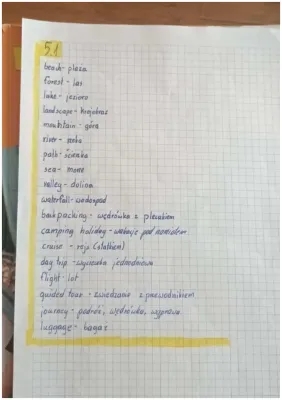 5.1
beach - plaża
forest - las
lake - jezioro
landscape - krajobraz
mountain - góra
river - rzeka
path - ścieżka
sea - morze
valley - dolina
waterfall - wodospad
backpacking - wędrówka z plecakiem
camping holiday - wakacje pod namiotem
cruise - rejs (statkiem)
day trip - wycieczka jednodniowa
flight - lot
guided tour - zwiedzanie z przewodnikiem
journey - podróż, wędrówka, wyprawa
luggage - bagaż